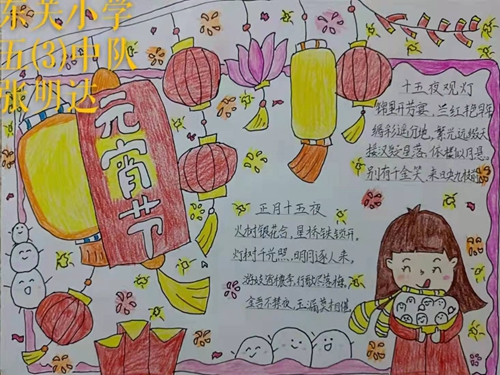 东关小学
五(3)中队
张明达
元宵节
十五夜观灯
锦里开芳宴，兰红艳早年
缛彩遥分地，繁光远缀天
接汉疑星落，依楼似月悬
别有千金笑，来映九枝前
正月十五夜
火树银花合，星桥铁锁开。
灯树千光照，明月逐人来。
游妓皆秾李，行歌尽落梅。
金吾不禁夜，玉漏莫相催